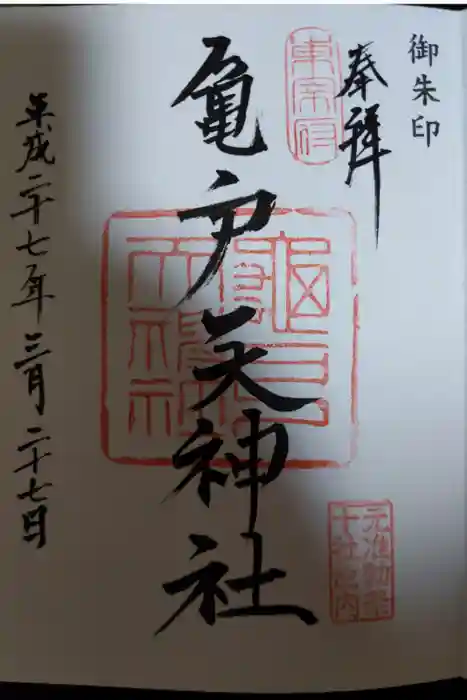 御朱印
奉拝
東宰府
亀戸天神社
元准勅祭
十社之内
平成二十七年三月二十七日